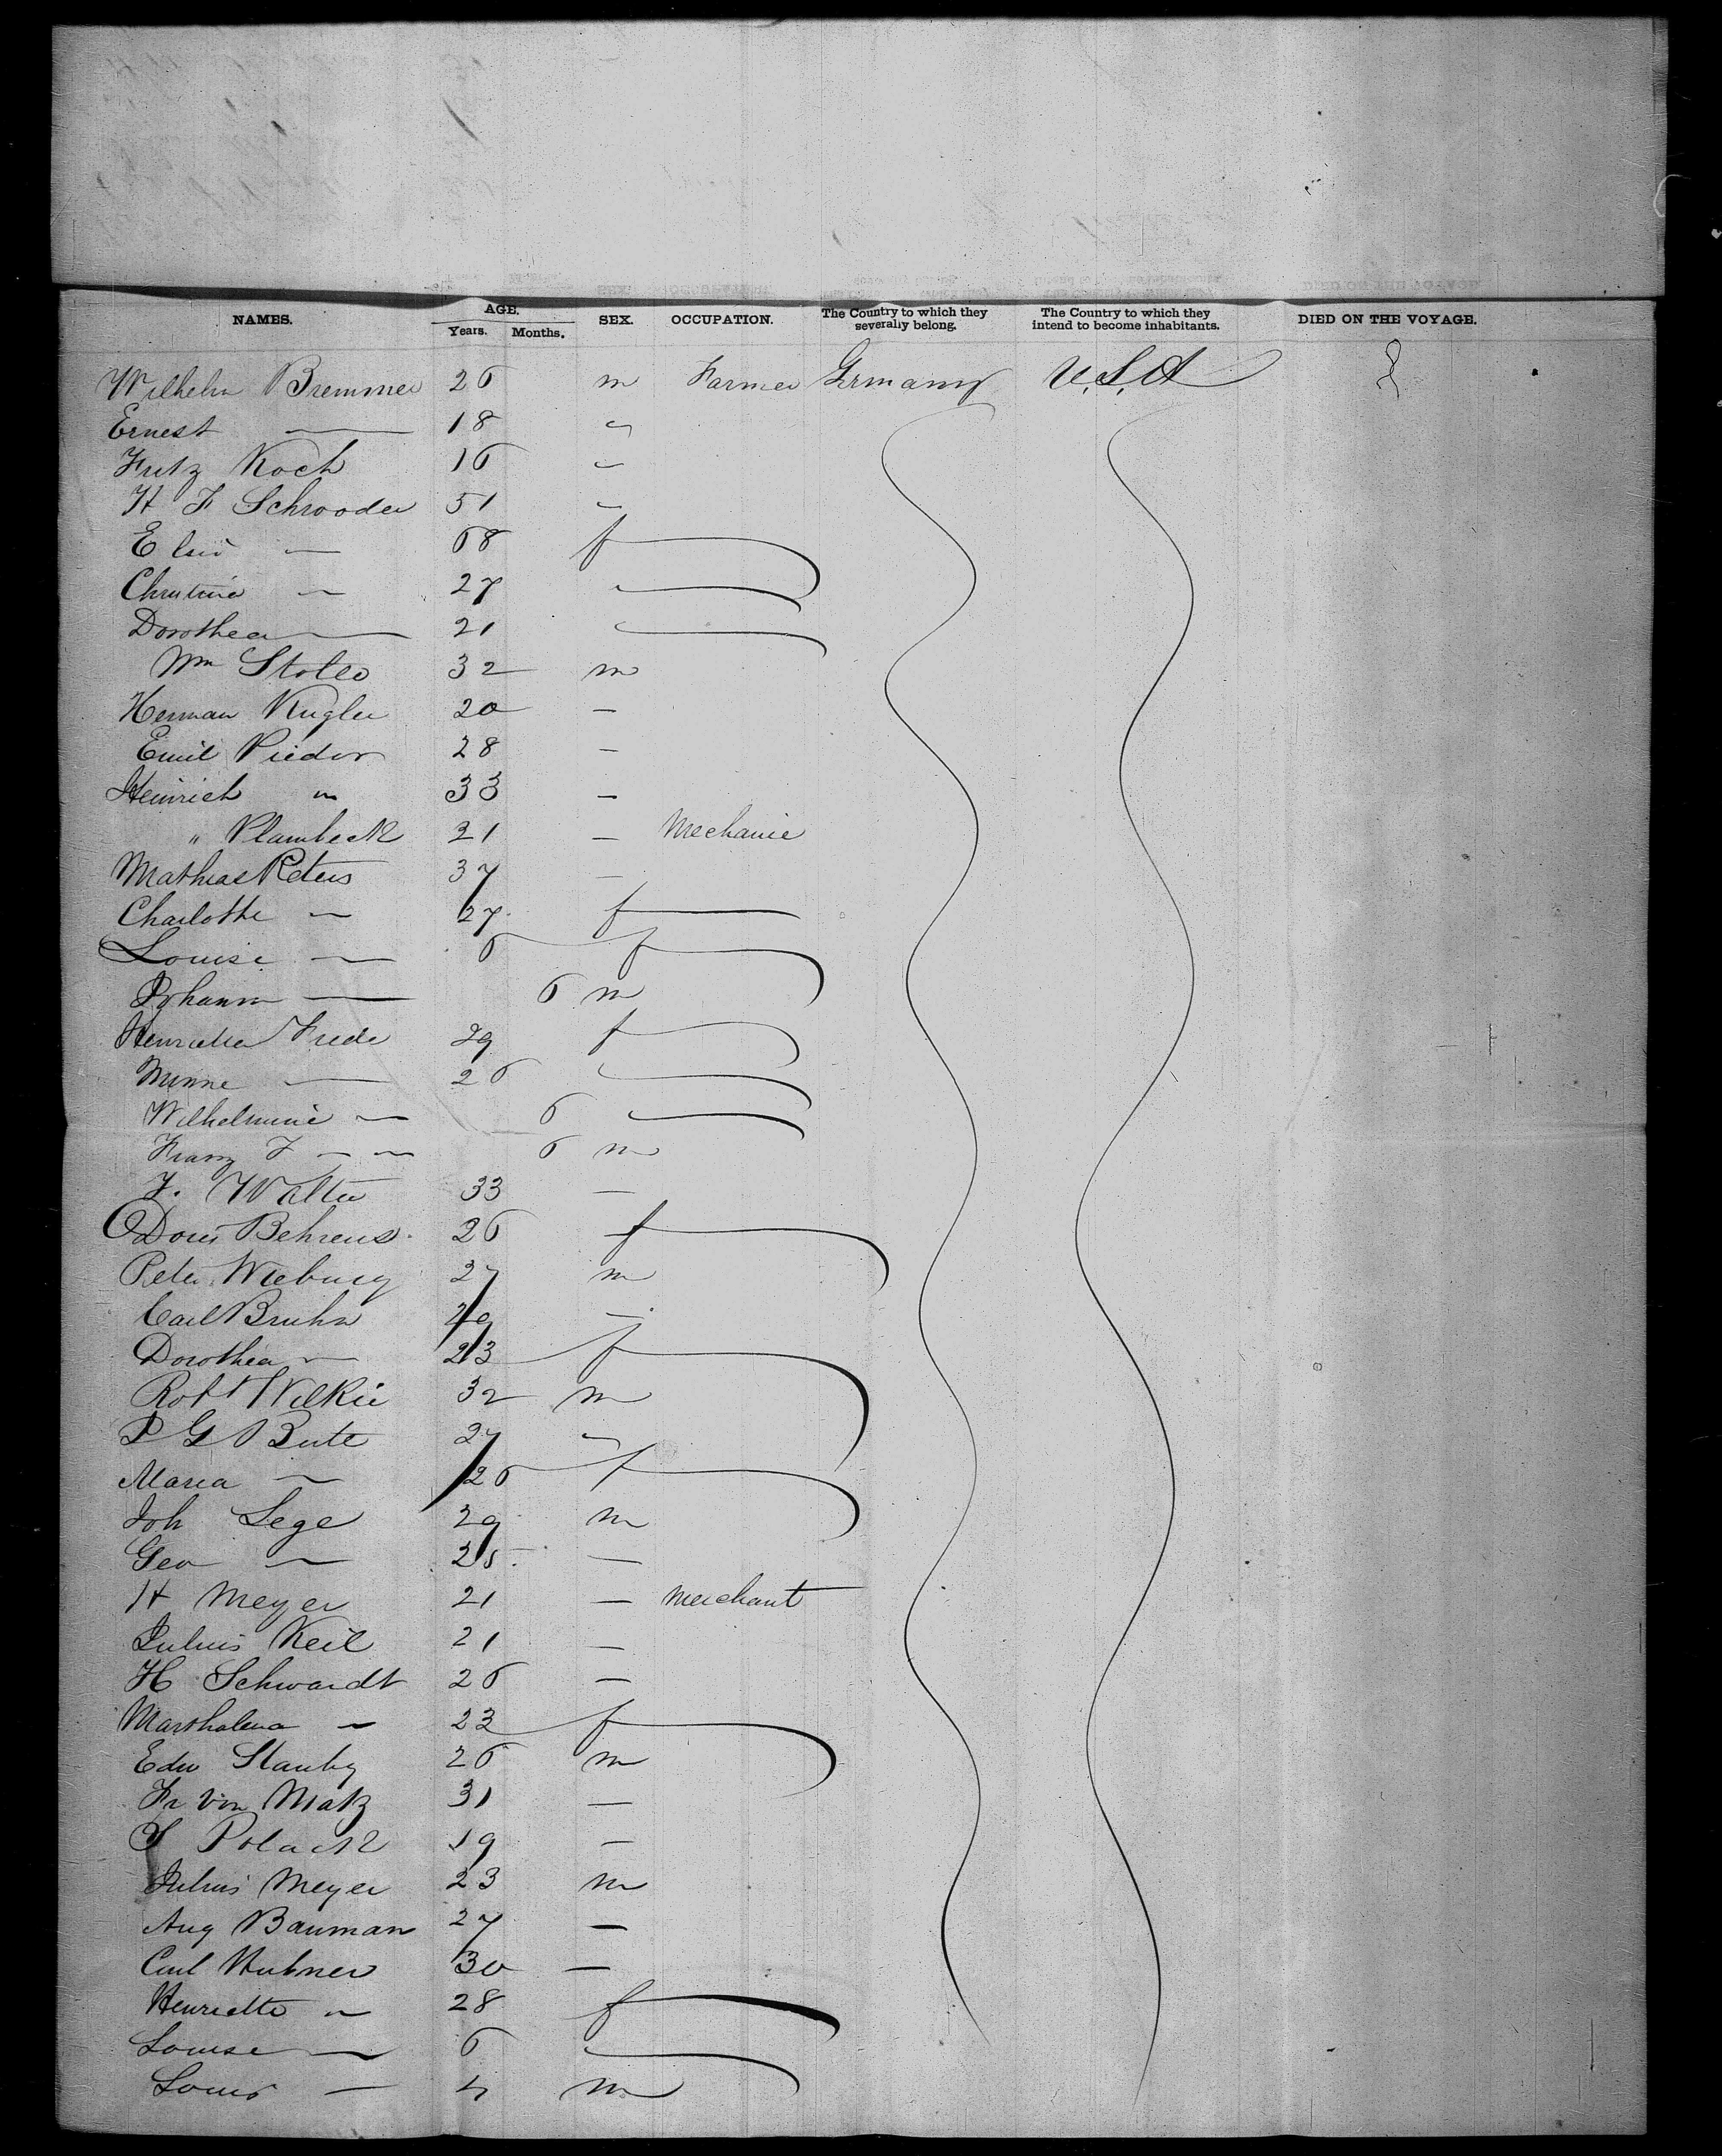 NAMES. AGE. SEX. OCCUPATION. The Country to which they severally belong. The Country to which they intend to become inhabitants. DIED ON THE VOYAGE.
Years. Months.
Wilhelm Bremmer 26 m Farmer Germany U.S.A
Ernest — 18 "
Fritz Koch 16 "
H F Schrooder 51 "
Elsie — 68 f
Christine — 27
Dorothea — 21
Wm Stoleo 32 m
Herman Kugler 20 —
Emil Piedor 28 —
Heinrich " 33 —
" Plambeck 21 — Mechanic
Mathias Peters 37 —
Charlotte — 27 f
Louise — 6 f
Johann — 6 m
Henriette Frede 29 f
Minne — 26
Wilhelmine — 6
Franz F — 6 m
F. Walter 33 —
Doris Behrens 26 f
Peter Wieburg 27 m
Carl Bruhn 29 —
Dorothea — 23 f
Robt Wilkie 32 m
P G Bute 27 "
Maria — 26 f
Joh Lege 29 m
Geo — 25 —
H Meyer 21 — Merchant
Julius Keil 21 —
H Schwardt 26 —
Marthalena — 23 f
Edw Stauby 26 m
Fr von Matz 31 —
S Polack 19 —
Julius Meyer 23 m
Aug Bauman 27 —
Carl Hubner 30 —
Henriette " 28 f
Louise — 6
Louis — 4 m